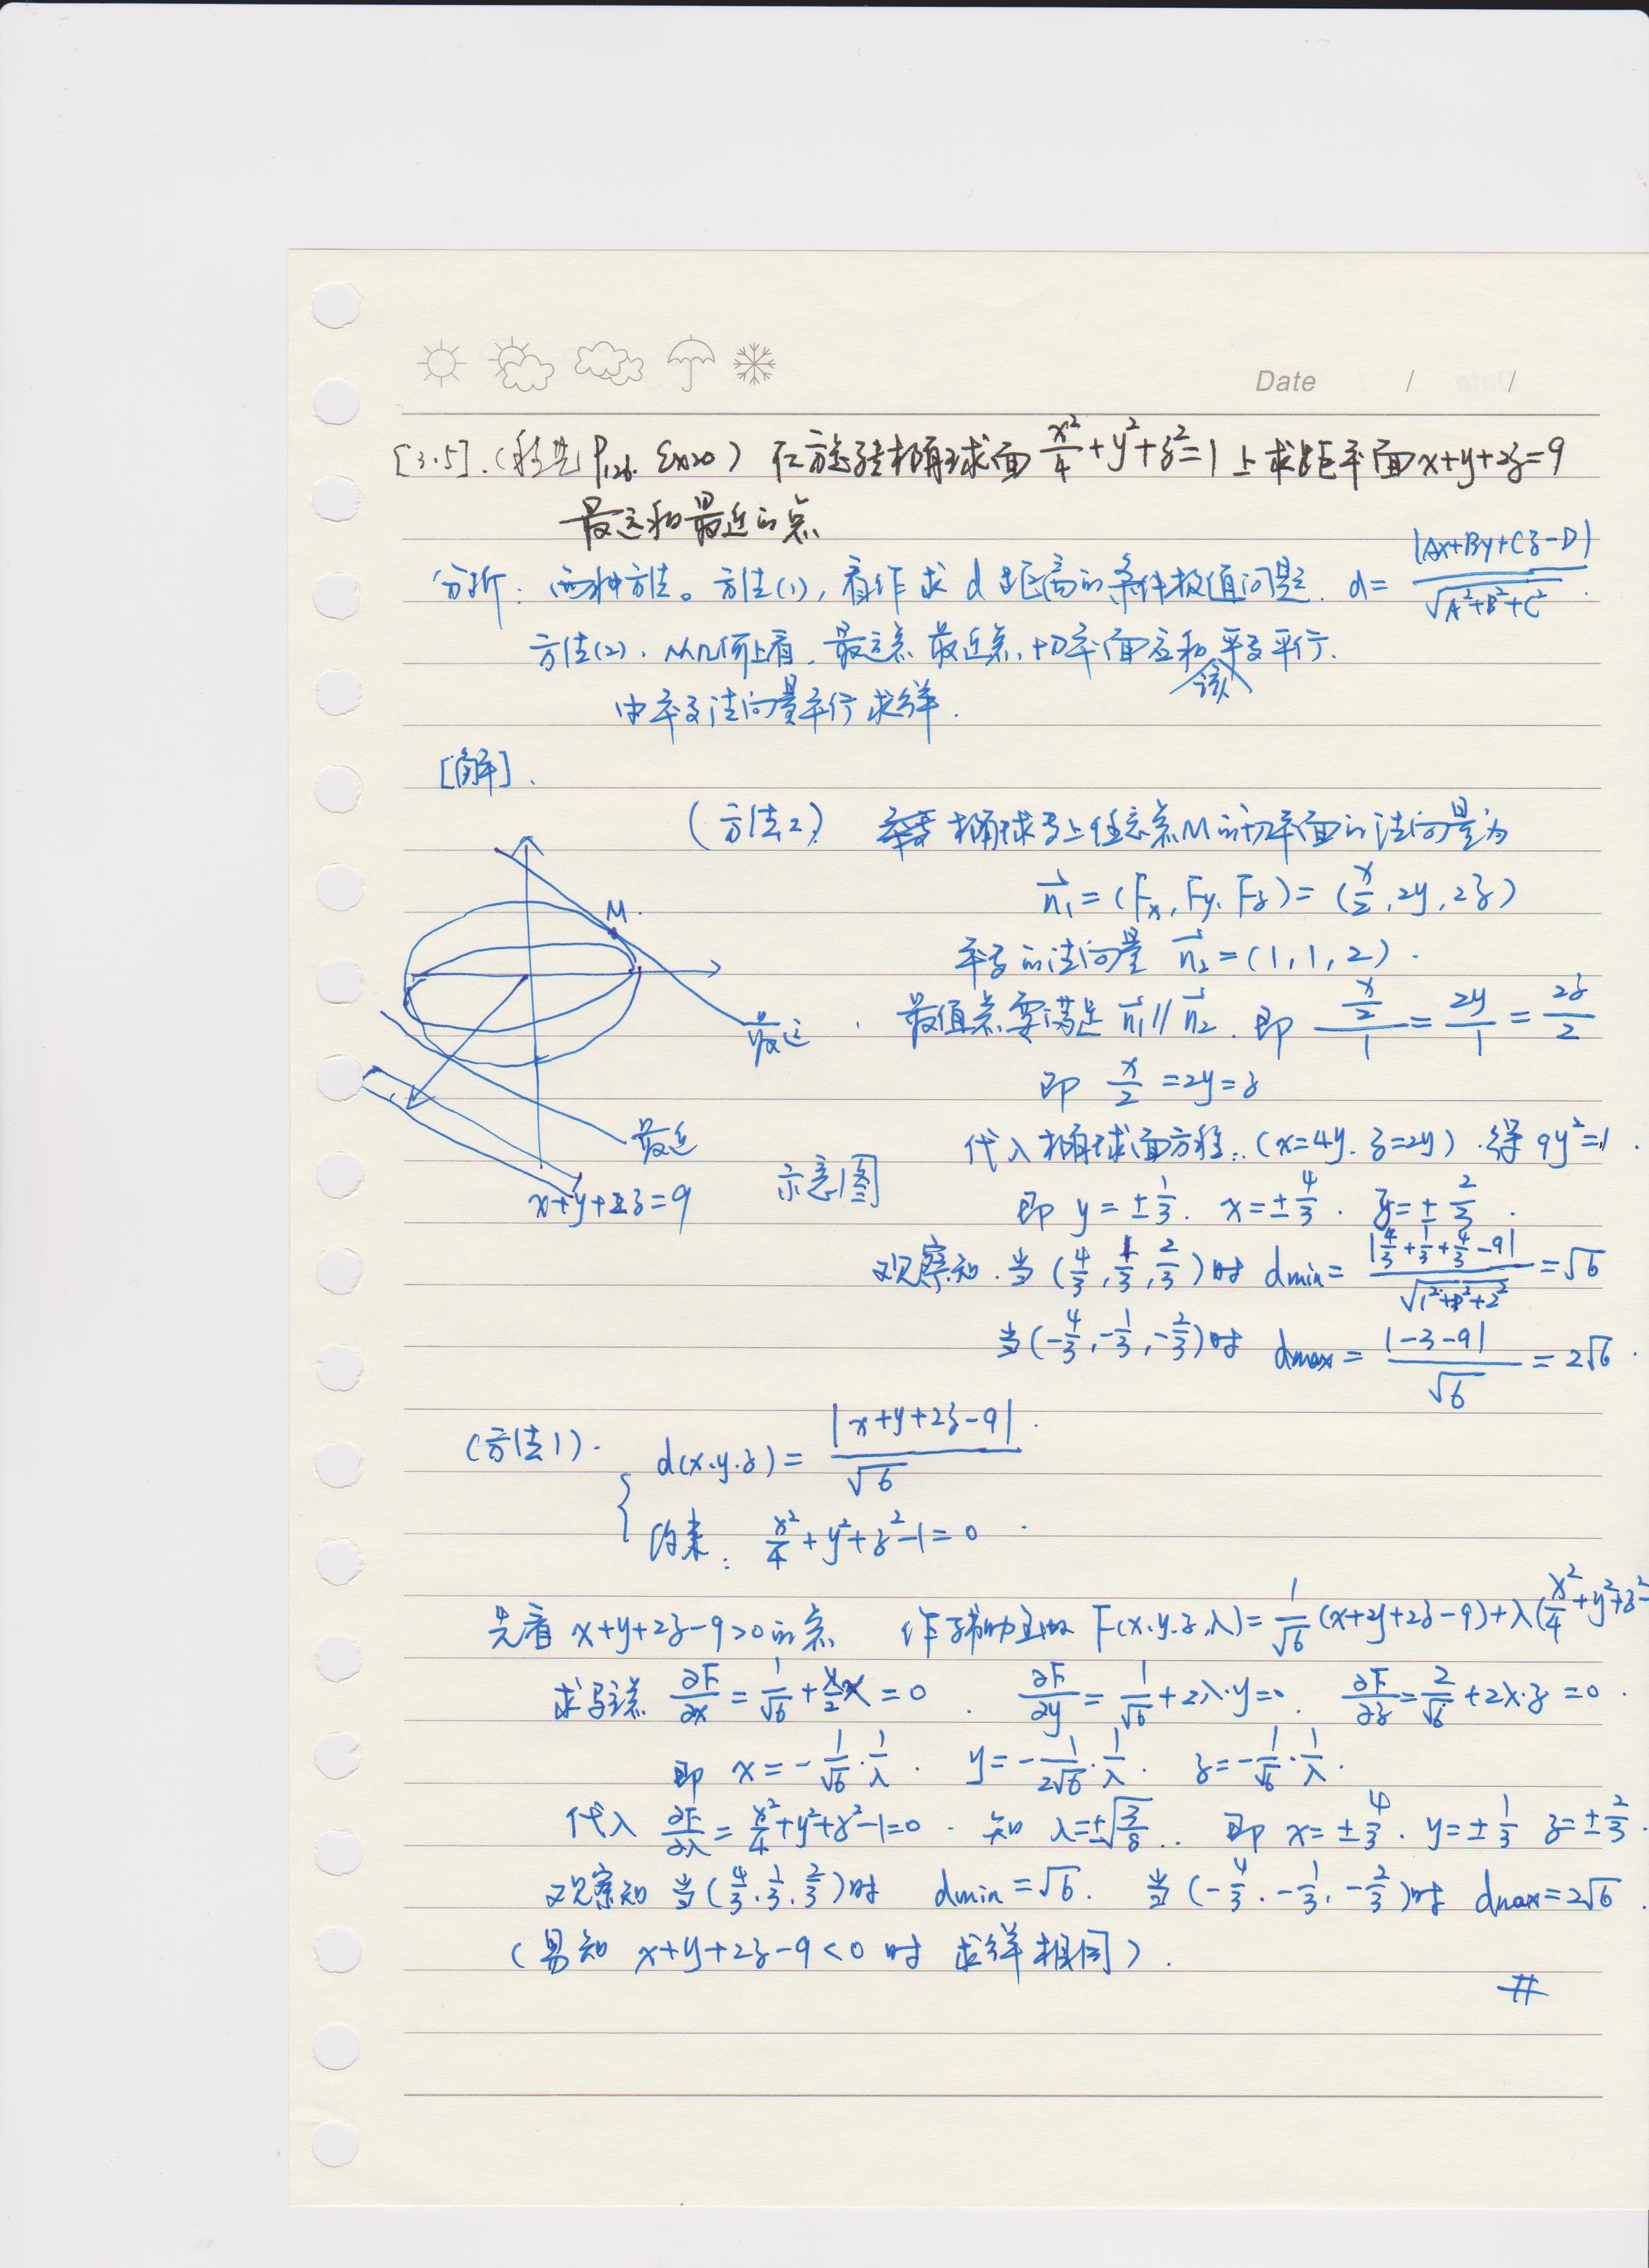 Date / /
[3.5].( P₁₂₆. Ex20) 在旋转椭球面 x²/4+y²+z²=1 上求距平面x+y+2z=9
最远和最近的点
分析: 两种方法。方法(1), 看作求 d 距离的条件极值问题. d= |Ax+By+Cz-D| / √(A²+B²+C²) .
方法(2). 从几何上看, 最远点 最近点, 切平面应和该平面平行.
由平面法向量平行求得.
[解].
(方法2) 椭球面上任意点M的切平面的法向量为
n₁=(Fx, Fy, Fz)=(x/2, 2y, 2z)
M.
平面的法向量 n₂=(1,1,2).
最远
最值点要满足 n₁∥n₂. 即 (x/2)/1 = 2y/1 = 2z/2
即 x/2=2y=z
最近
代入椭球面方程: (x=4y. z=2y). 得 9y²=1.
示意图
x+y+2z=9
即 y=±1/3. x=±4/3. z=±2/3.
观察知. 当(4/3, 1/3, 2/3)时 dmin= |4/3+1/3+4/3-9| / √(1²+1²+2²) =√6
当(-4/3, -1/3, -2/3)时 dmax= |-3-9| / √6 = 2√6.
(方法1). d(x.y.z)= |x+y+2z-9| / √6 .
约束: x²/4+y²+z²-1=0.
先看 x+y+2z-9>0的点 作辅助函数 F(x.y.z,λ)= 1/√6 (x+2y+2z-9)+λ(x²/4+y²+z²-
求驻点 ∂F/∂x = 1/√6 + λ/2 x = 0. ∂F/∂y = 1/√6 +2λ·y=0. ∂F/∂z = 2/√6 +2λ·z=0.
即 x=-1/√6·1/λ. y=-1/2√6·1/λ. z=-1/√6·1/λ.
代入 ∂F/∂λ = x²/4+y²+z²-1=0. 知 λ=±√(3/8).. 即 x=±4/3. y=±1/3 z=±2/3.
观察知 当(4/3. 1/3. 2/3)时 dmin=√6. 当(-4/3. -1/3, -2/3)时 dmax=2√6.
(易知 x+y+2z-9<0 时 求得相同).
#